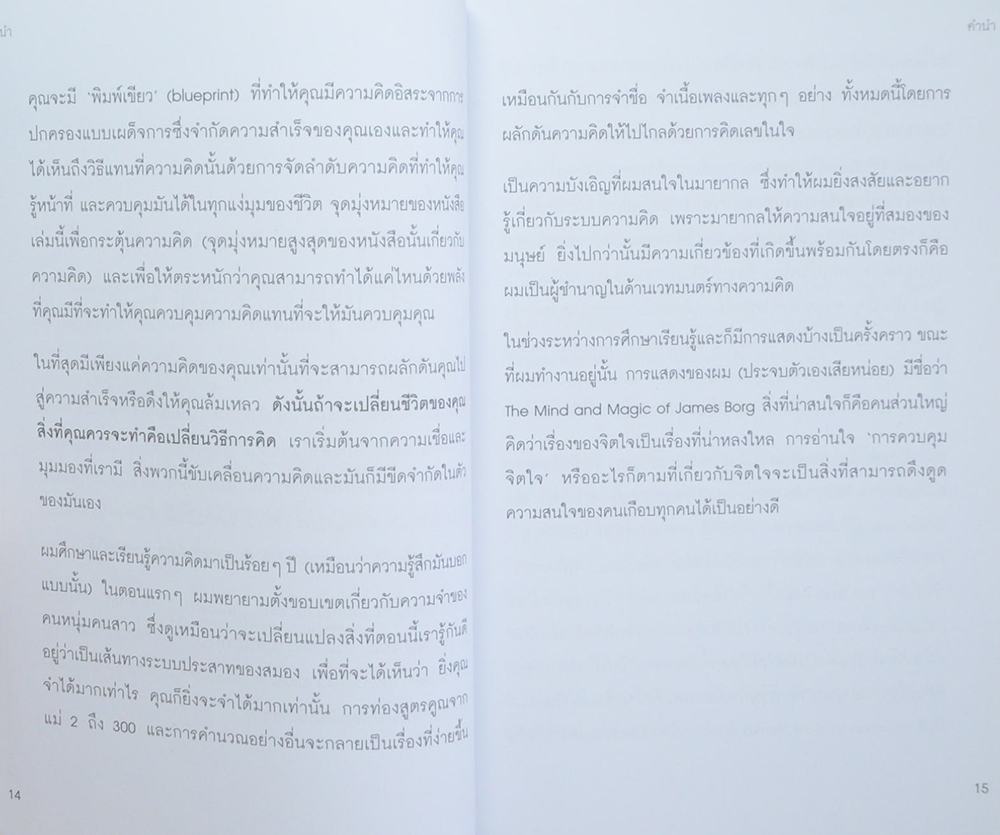 นำ
คุณจะมี ‘พิมพ์เขียว’ (blueprint) ที่ทำให้คุณมีความคิดอิสระจากการ
ปกครองแบบเผด็จการซึ่งจำกัดความสำเร็จของคุณเองและทำให้คุณ
ได้เห็นถึงวิธีแทนที่ความคิดนั้นด้วยการจัดลำดับความคิดที่ทำให้คุณ
รู้หน้าที่ และควบคุมมันได้ในทุกแง่มุมของชีวิต จุดมุ่งหมายของหนังสือ
เล่มนี้เพื่อกระตุ้นความคิด (จุดมุ่งหมายสูงสุดของหนังสือนั้นเกี่ยวกับ
ความคิด) และเพื่อให้ตระหนักว่าคุณสามารถทำได้แค่ไหนด้วยพลัง
ที่คุณมีที่จะทำให้คุณควบคุมความคิดแทนที่จะให้มันควบคุมคุณ
ในที่สุดมีเพียงแค่ความคิดของคุณเท่านั้นที่จะสามารถผลักดันคุณไป
สู่ความสำเร็จหรือดึงให้คุณล้มเหลว ดังนั้นถ้าจะเปลี่ยนชีวิตของคุณ
สิ่งที่คุณควรจะทำคือเปลี่ยนวิธีการคิด เราเริ่มต้นจากความเชื่อและ
มุมมองที่เรามี สิ่งพวกนี้ขับเคลื่อนความคิดและมันก็มีขีดจำกัดในตัว
ของมันเอง
ผมศึกษาและเรียนรู้ความคิดมาเป็นร้อยๆ ปี (เหมือนว่าความรู้สึกมันบอก
แบบนั้น) ในตอนแรกๆ ผมพยายามตั้งขอบเขตเกี่ยวกับความจำของ
คนหนุ่มคนสาว ซึ่งดูเหมือนว่าจะเปลี่ยนแปลงสิ่งที่ตอนนี้เรารู้กันดี
อยู่ว่าเป็นเส้นทางระบบประสาทของสมอง เพื่อที่จะได้เห็นว่า ยิ่งคุณ
จำได้มากเท่าไร คุณก็ยิ่งจะจำได้มากเท่านั้น การท่องสูตรคูณจาก
แม่ 2 ถึง 300 และการคำนวณอย่างอื่นจะกลายเป็นเรื่องที่ง่ายขึ้น
14
คำนำ
เหมือนกันกับการจำชื่อ จำเนื้อเพลงและทุกๆ อย่าง ทั้งหมดนี้โดยการ
ผลักดันความคิดให้ไปไกลด้วยการคิดเลขในใจ
เป็นความบังเอิญที่ผมสนใจในมายากล ซึ่งทำให้ผมยิ่งสงสัยและอยาก
รู้เกี่ยวกับระบบความคิด เพราะมายากลให้ความสนใจอยู่ที่สมองของ
มนุษย์ ยิ่งไปกว่านั้นมีความเกี่ยวข้องที่เกิดขึ้นพร้อมกันโดยตรงก็คือ
ผมเป็นผู้ชำนาญในด้านเวทมนตร์ทางความคิด
ในช่วงระหว่างการศึกษาเรียนรู้และก็มีการแสดงบ้างเป็นครั้งคราว ขณะ
ที่ผมทำงานอยู่นั้น การแสดงของผม (ประจบตัวเองเสียหน่อย) มีชื่อว่า
The Mind and Magic of James Borg สิ่งที่น่าสนใจก็คือคนส่วนใหญ่
คิดว่าเรื่องของจิตใจเป็นเรื่องที่น่าหลงใหล การอ่านใจ ‘การควบคุม
จิตใจ’ หรืออะไรก็ตามที่เกี่ยวกับจิตใจจะเป็นสิ่งที่สามารถดึงดูด
ความสนใจของคนเกือบทุกคนได้เป็นอย่างดี
15